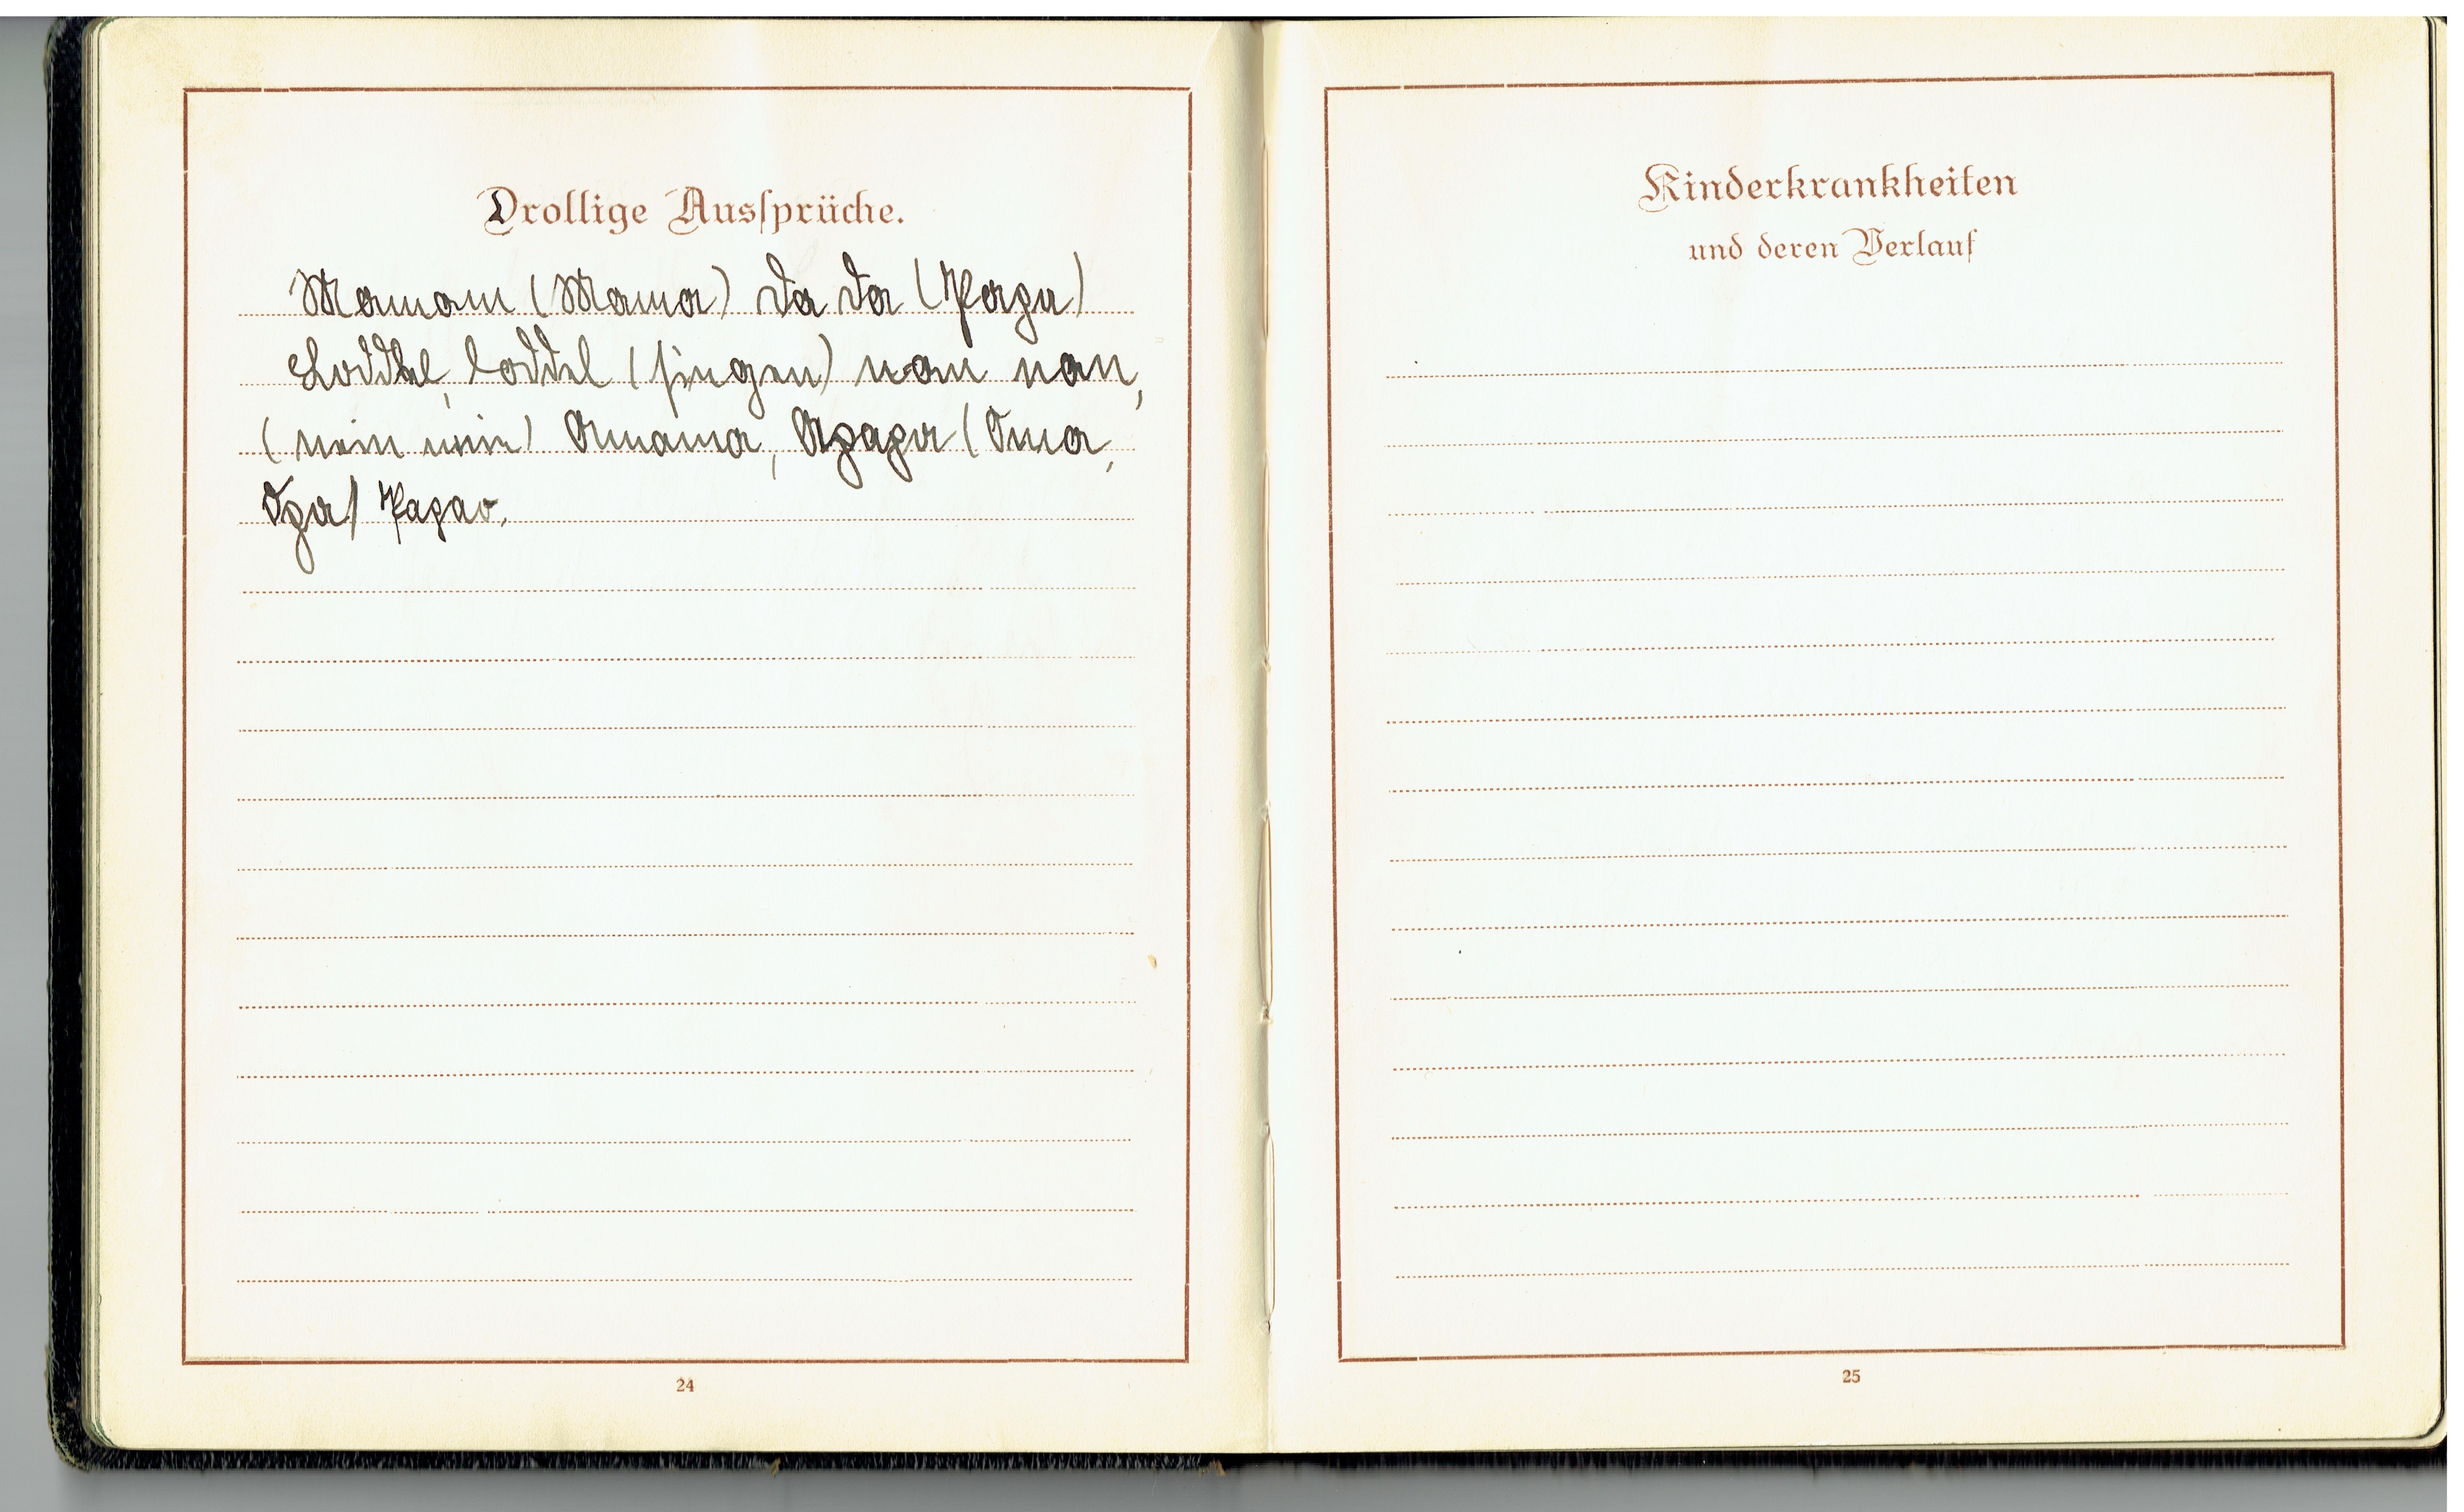 Drollige Aussprüche.
Mamam (Mama) da da (Papa)
Loddel, loddel (singen) nan nan,
(nein nein) Amama, Apapa (Oma,
Opa) Papao.
24
Kinderkrankheiten
und deren Verlauf
25